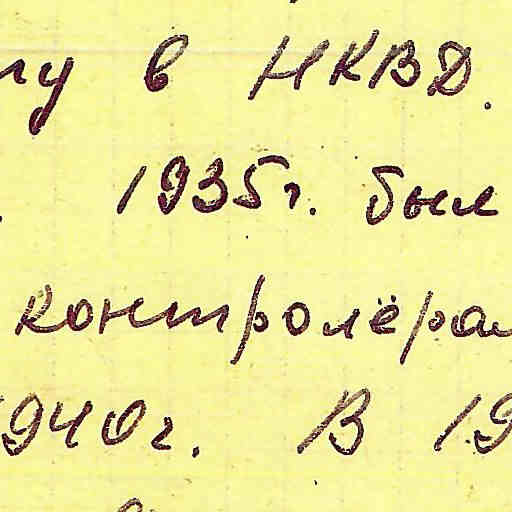 гу в НКВД.
1935г. был
контролёрам
1940г. В 19